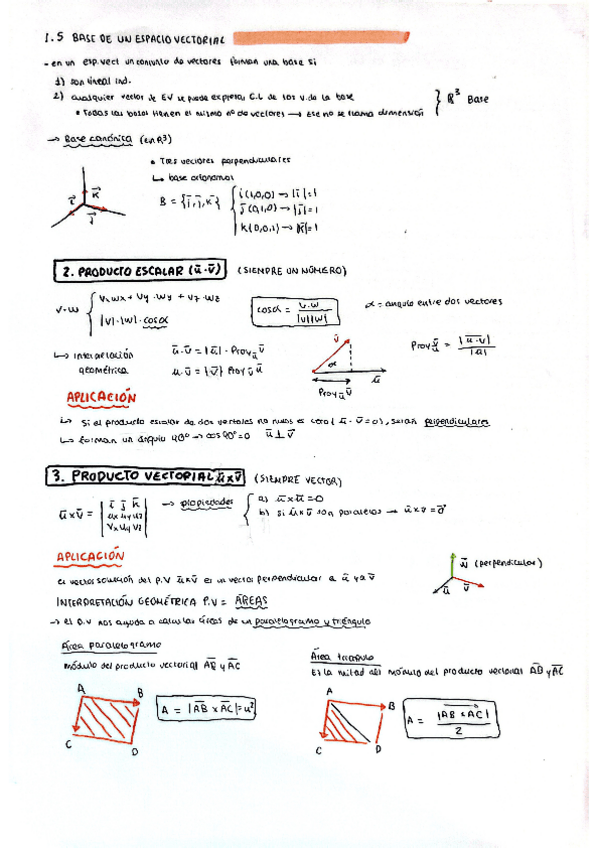 1.5 BASE DE UN ESPACIO VECTORIAL
- en un esp. vect un conjunto de vectores forman una base si
1) son lineal ind.
2) cualquier vector de EV se puede expresar C.L de los v. de la base
• Todas las bases tienen el mismo nº de vectores → Ese no se llama dimensión
} R³ Base
→ Base canónica (en R³)
• Tres vectores perpendiculares
↳ base ortonormal
B = {i, j, k}
i (1,0,0) → |i| = 1
j (0,1,0) → |j| = 1
k (0,0,1) → |k| = 1
i k j
2. PRODUCTO ESCALAR (u·v) (SIEMPRE UN NÚMERO)
v·w
Vx Wx + Vy · Wy + Vz · Wz
|v|·|w|·cosα
cosα = v·w / |v||w|
α = angulo entre dos vectores
↳ Interpretación geométrica
u·v = |u| · Proy u v
u·v = |v| Proy v u
v α u
Proy u v
Proy u v = |u·v| / |u|
APLICACIÓN
↳ Si el producto escalar de dos vectores no nulos es cero (u·v = 0), serán perpendiculares
↳ forman un ángulo 90° → cos 90° = 0 u ⊥ v
3. PRODUCTO VECTORIAL u x v (SIEMPRE VECTOR)
u x v = | i j k
ux uy uz
vx vy vz |
→ propiedades
a) u x u = 0
b) si u x v son paralelos → u x v = 0
APLICACIÓN
el vector solución del P.V u x v es un vector perpendicular a u y a v
w (perpendicular)
u v
INTERPRETACIÓN GEOMÉTRICA P.V = ÁREAS
→ el P.V nos ayuda a calcular áreas de un paralelogramo y triángulo
Área paralelogramo
módulo del producto vectorial AB y AC
A B C D
A = |AB x AC| = u²
Área triangulo
Es la mitad del módulo del producto vectorial AB y AC
A B C D
A = |AB x AC| / 2